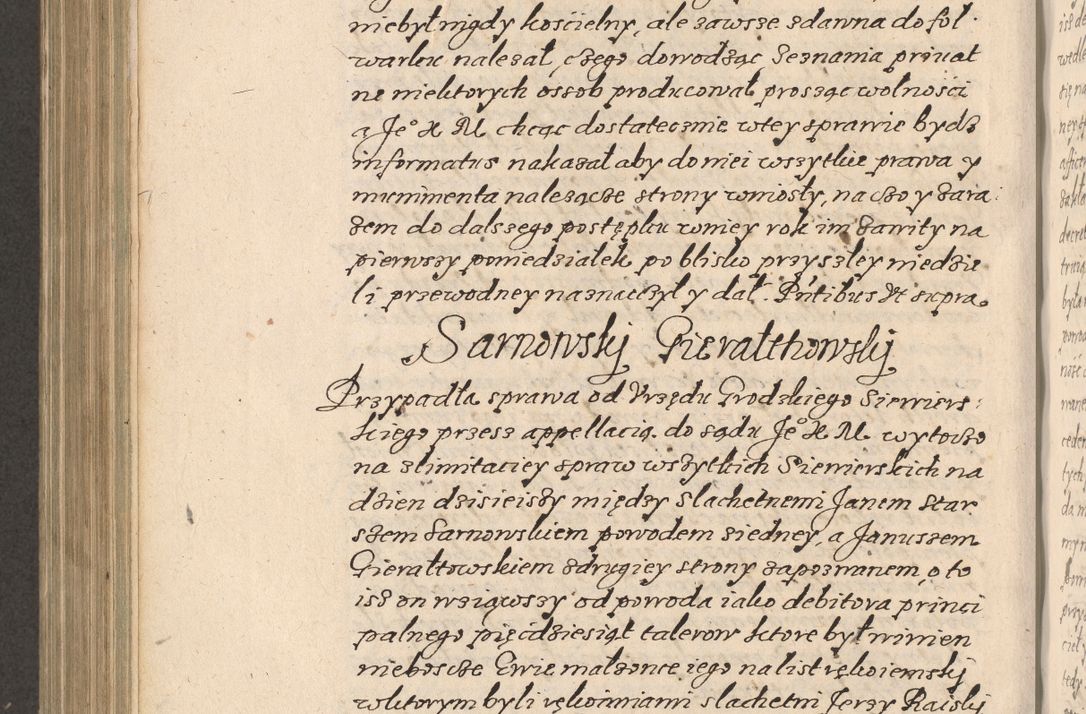 niebył nigdy kościelny, ale zawsze zdawna do fol
warku nalezał, czego dowodząc Zeznania priuat
ne niektorych ossob producował prosząc wolności
a Jeº X M. chcąc dostatecznie wtey sprawie bydz
informatus nakazał aby do niei wszytkie prawa y
munimenta nalezącze strony wniosły, na czo y zara
zem do dalszego postępku wniey rok im zawity na
pierwszy poniedziałek po blisko przyszley niedzie
li przewodney naznaczył y dał. Pntibus Vt supra.
Sarnowskij Gierałthowskij
Przypadła sprawa od Vrzędu Grodzkiego Siewiers
kiego przesz appellacią do sądu Jeº X M. wytoczo
na zlimitaciey spraw wszytkich Siewierskich na
dzien dzisieiszy między Slachetnemi Janem Star
szem Sarnowskiem powodem ziedney, a Januszem
Gierałtowskiem zdrugiey strony zapozwanem, o to
isz on wziąwszy od powoda iako debitora princi
palnego pięcdziesiąt talerow ktore był winien
nieboscze Ewie małzonce iego na list rękoiemskij
wktorym byli rękoimiami slachetni Jerzy Raiskij